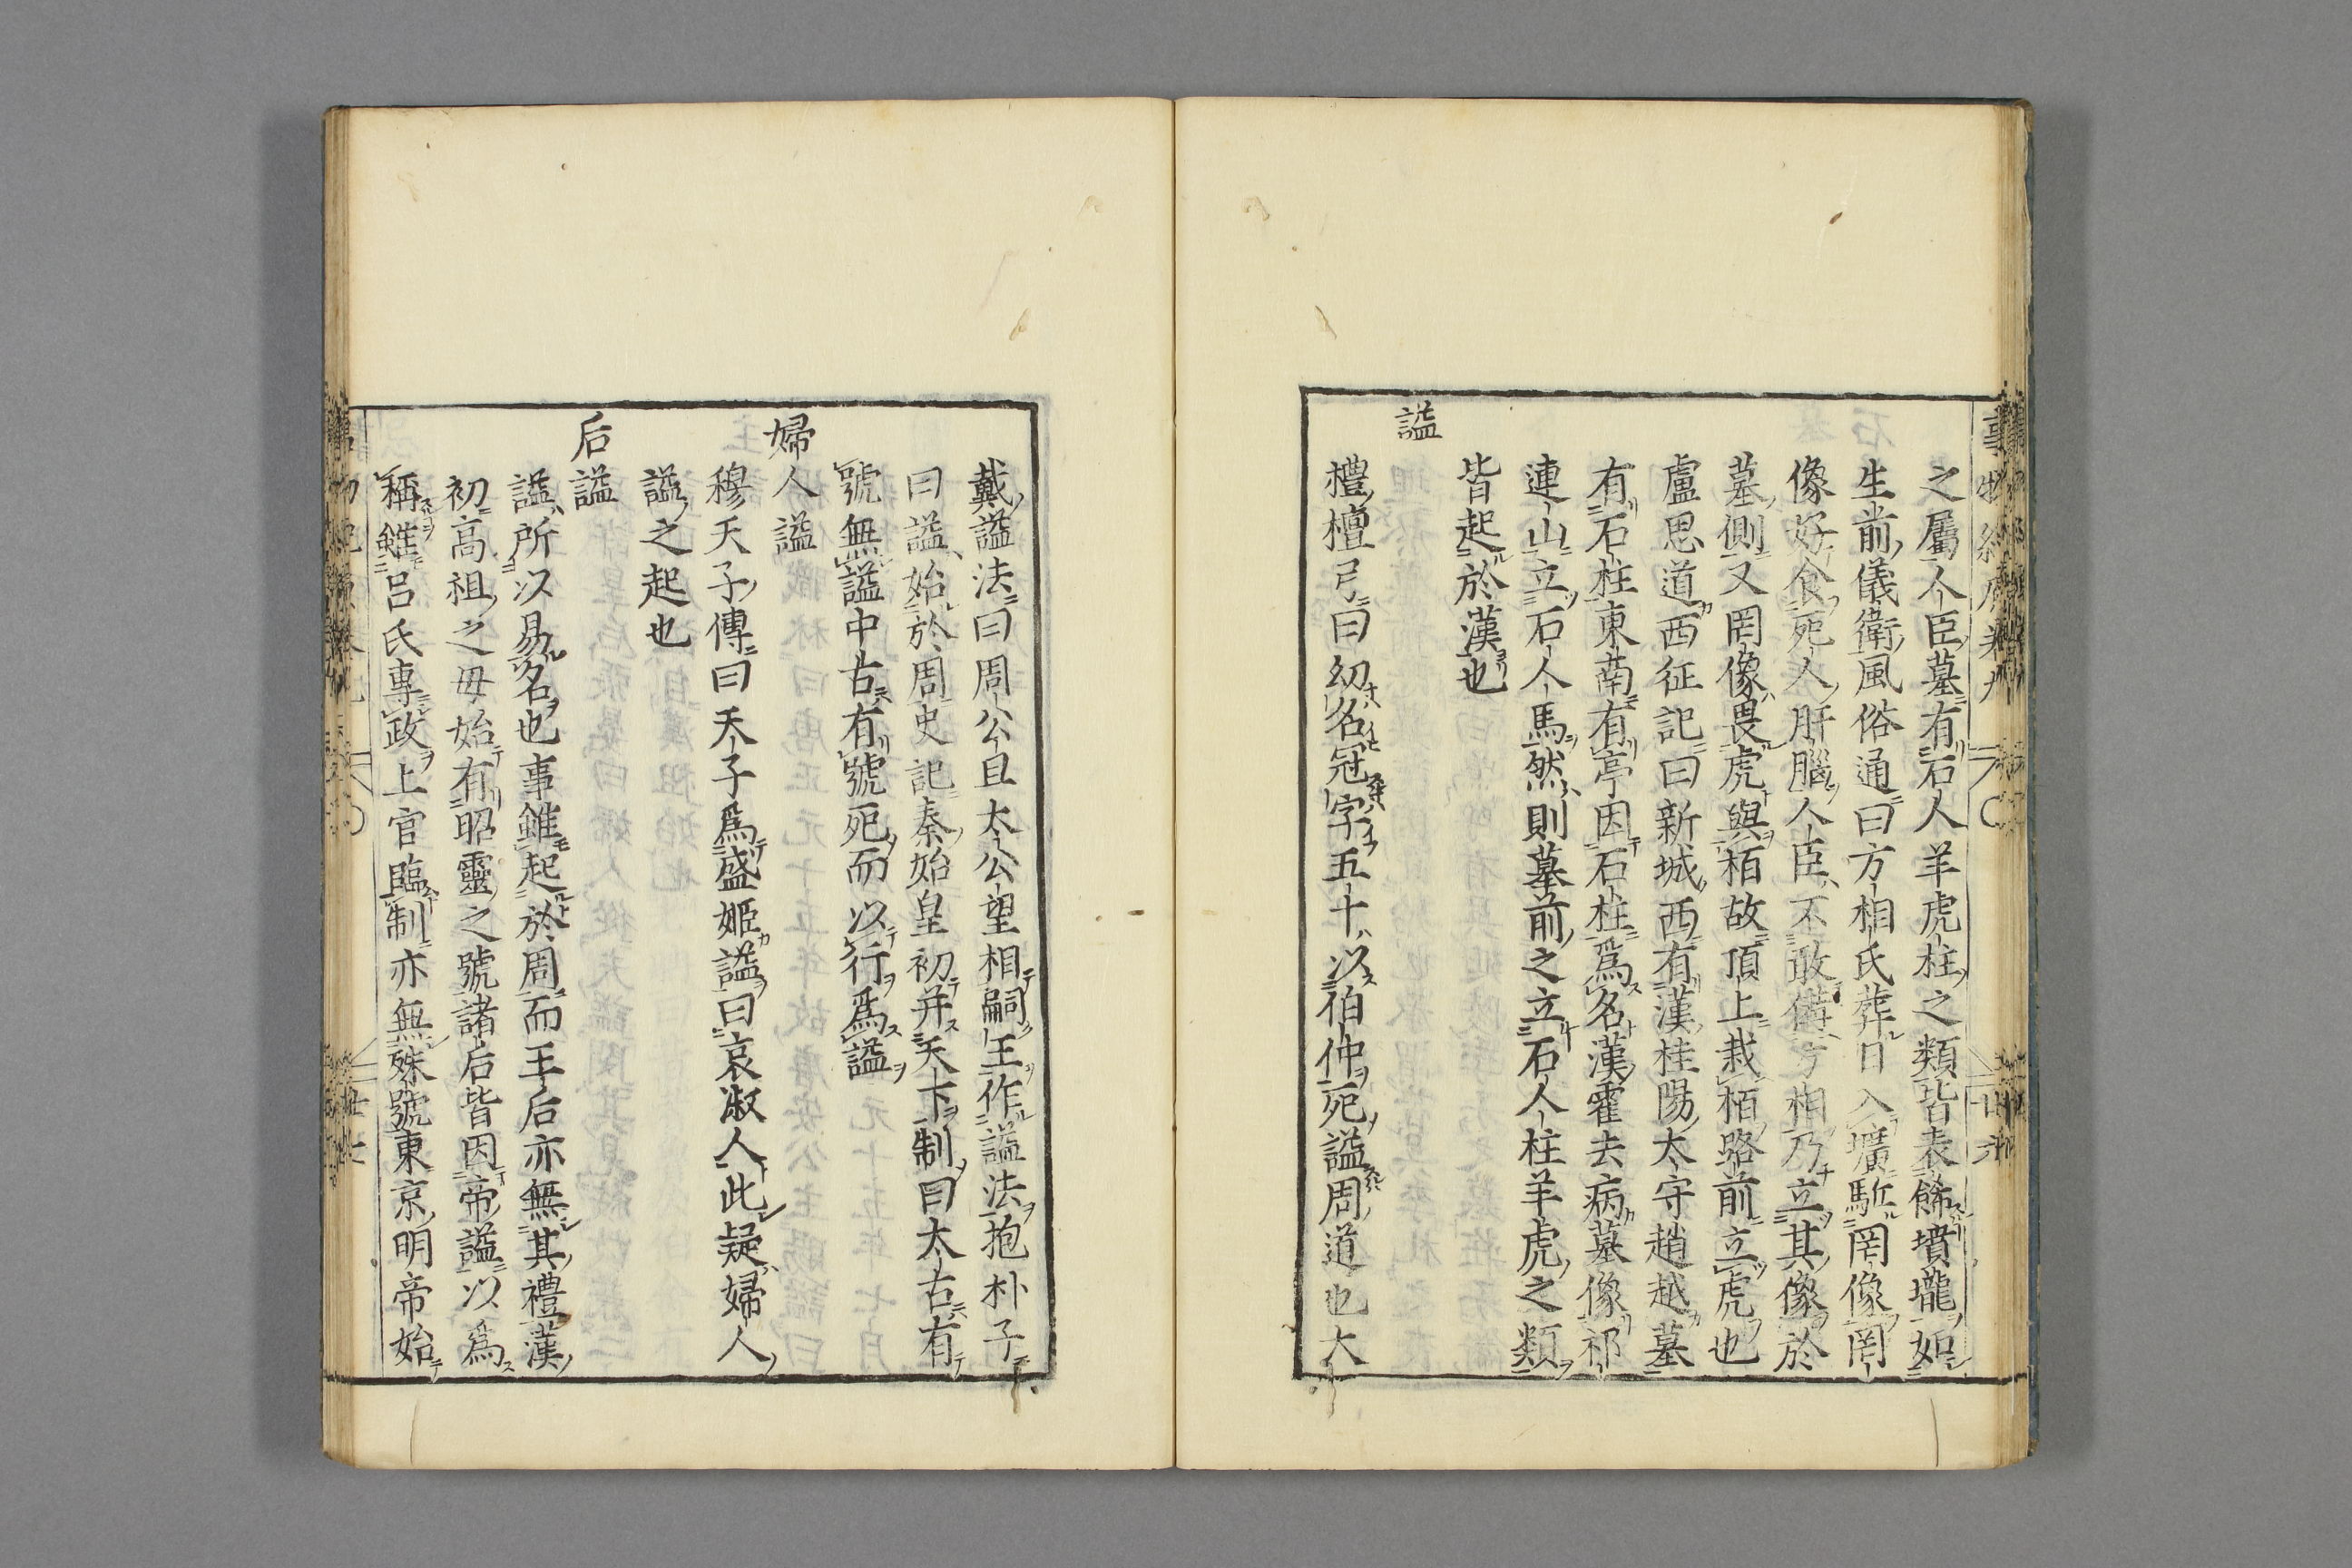 之屬人臣墓有石人羊虎柱之類皆表飾墳壠如
生前儀衛風俗通曰方相氏葬日入壙駈罔像罔
像好食死人肝腦人臣不敢備方相乃立其像於
墓側又罔像畏虎與栢故頂上栽栢路前立虎也
盧思道西征記曰新城西有漢桂陽太守趙越墓
有石柱東南有亭因石柱爲名漢霍去病墓像祁
連山立石人馬然則墓前之立石人柱羊虎之類
皆起於漢也
諡
禮檀弓曰幼名冠字五十以伯仲死諡周道也大
戴諡法曰周公旦太公望相嗣王作諡法抱朴子
曰諡始於周史記秦始皇初并天下制曰太古有
號無諡中古有號死而以行爲諡
婦人諡
穆天子傳曰天子爲盛姬諡曰哀淑人此疑婦人
諡之起也
后諡
諡所以易名也事雖起於周而王后亦無其禮漢
初高祖之毋始有昭靈之號諸后皆因帝諡以爲
稱雖呂氏專政上官臨制亦無殊號東京明帝始